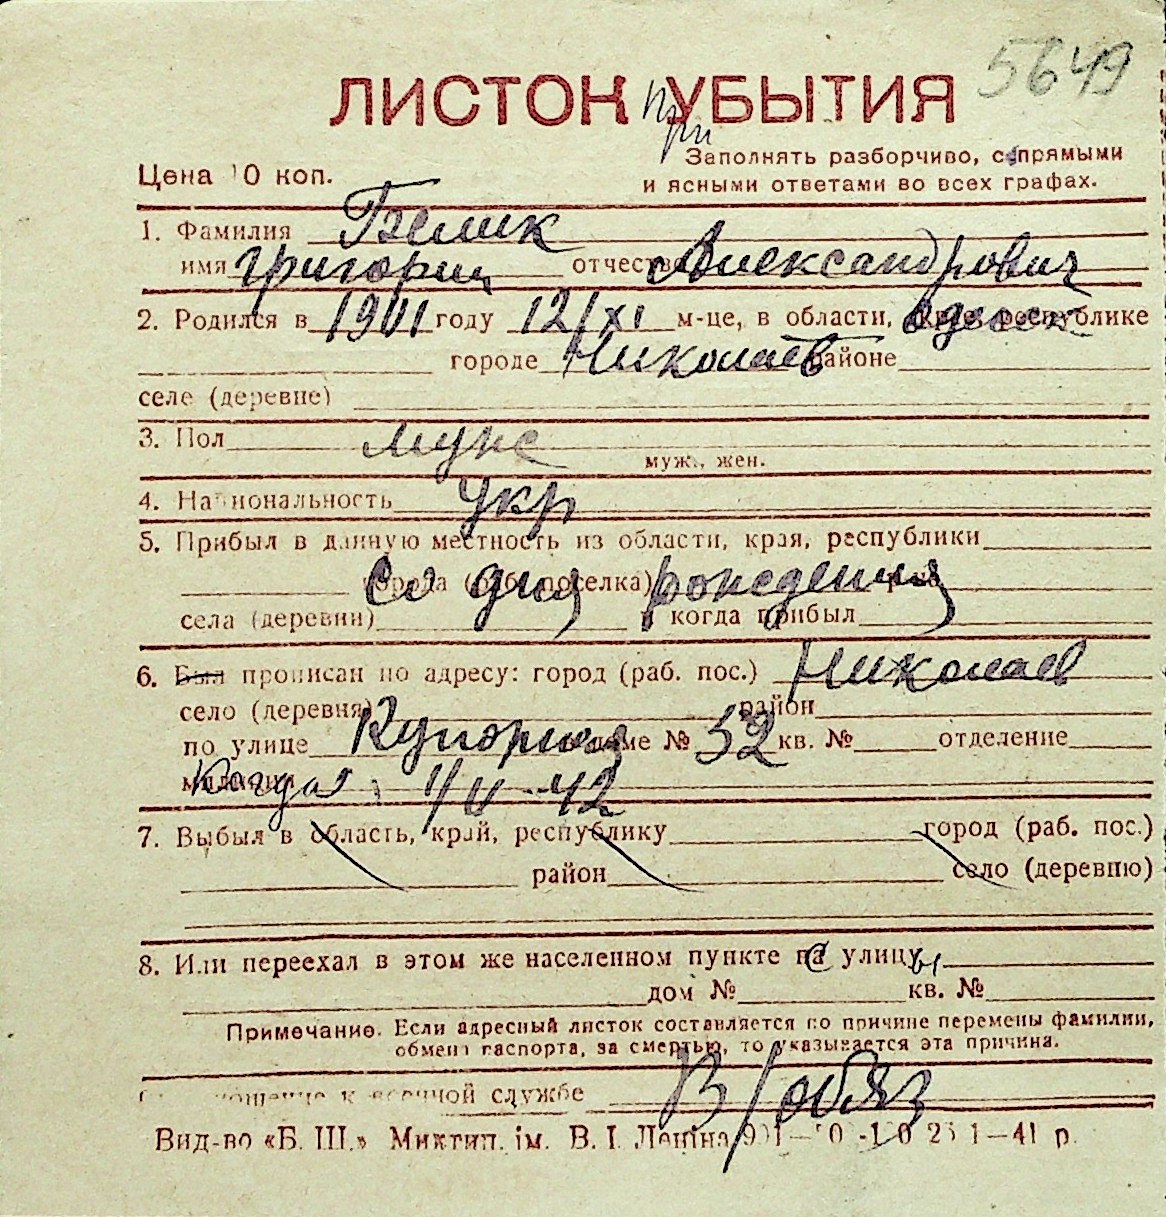 5649
ЛИСТОК при УБЫТИЯ
Заполнять разборчиво, с прямыми
Цена 10 коп.
и ясными ответами во всех графах.
1. Фамилия Белик
имя Григорий отчество Александрович
2. Родился в 1901 году 12/XI м-це, в области, крае, республике Одесск
городе Николаев районе
селе (деревне)
3. Пол муж
муж., жен.
4. Национальность укр
5. Прибыл в данную местность из области, края, республики
города (раб. поселка) со дня рождения
села (деревни) и когда прибыл
6. Был прописан по адресу: город (раб. пос.) Николаев
село (деревня) район
по улице Купорная в доме № 52 кв. № отделение
милиции Когда 1/V-42
7. Выбыл в область, край, республику город (раб. пос.)
район село (деревню)
8. Или переехал в этом же населенном пункте на с улицу ы
дом № кв. №
Примечание. Если адресный листок составляется по причине перемены фамилии,
обмена паспорта, за смертью, то указывается эта причина.
к военной службе В/обяз
Вид-во «Б. Ш.» Миктип. ім. В. І. Леніна 1—41 р.